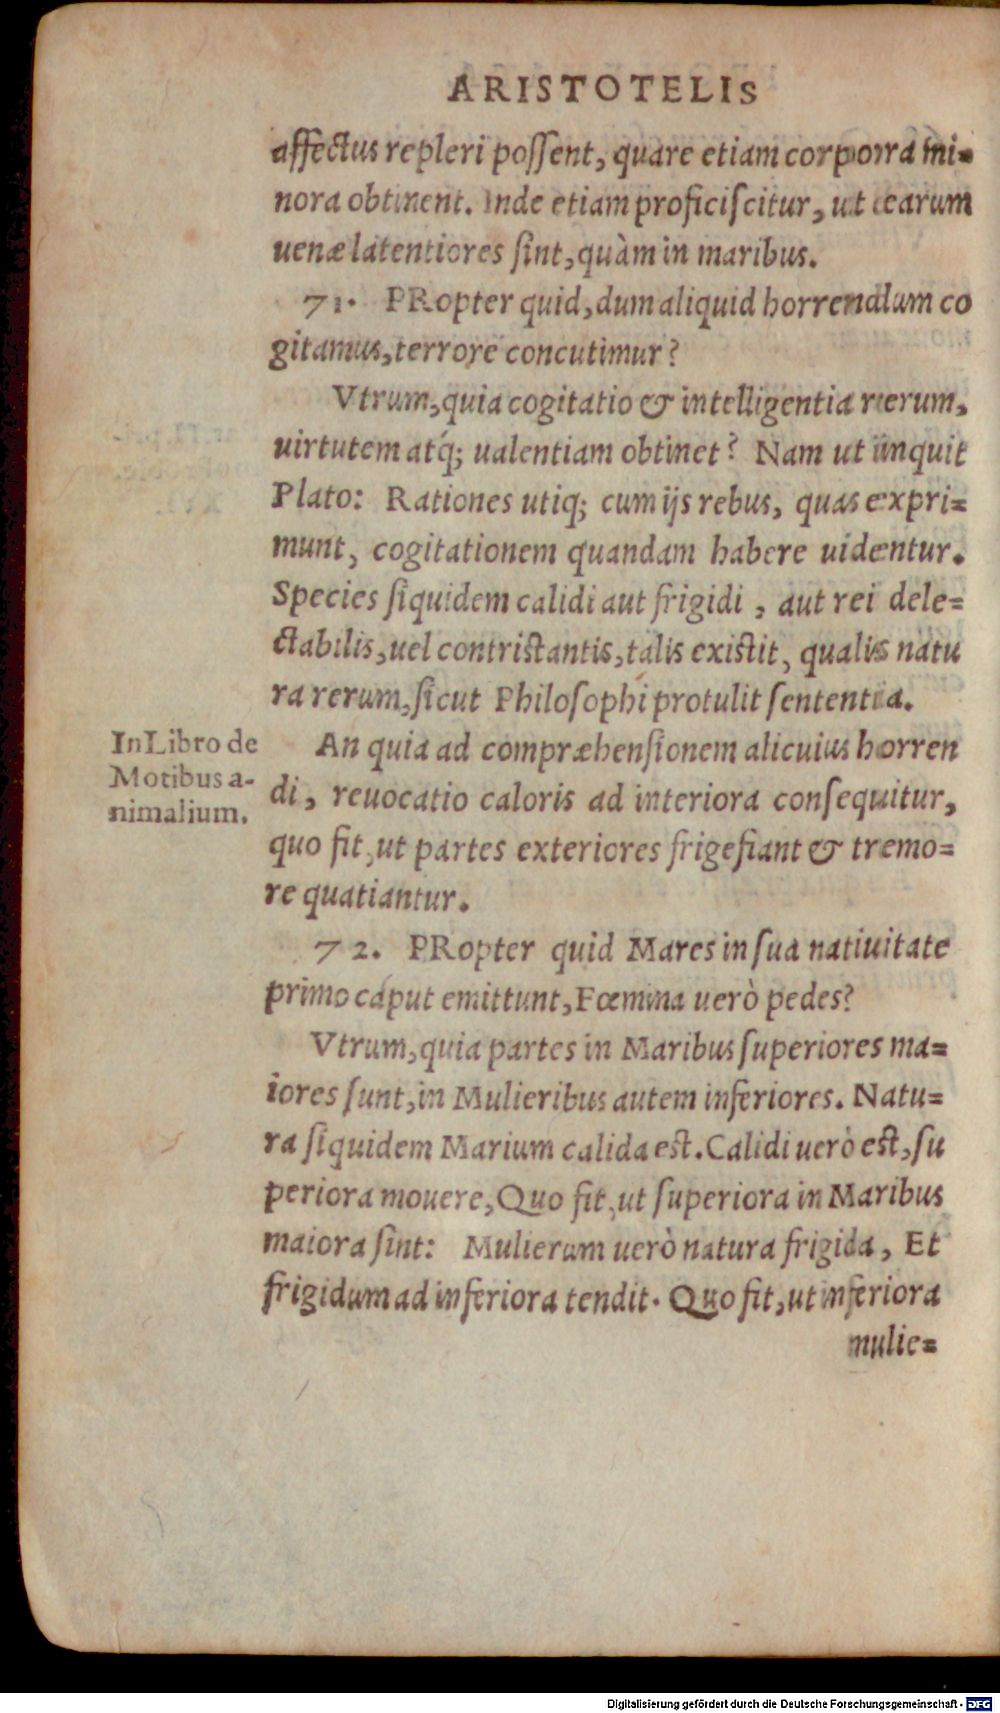 ARISTOTELIS
affectus repleri possent, quare etiam corpora mi=
nora obtinent. Inde etiam proficiscitur, ut earum
uenæ latentiores sint, quàm in maribus.
71. PRopter quid, dum aliquid horrendum co
gitamus, terrore concutimur?
Vtrum, quia cogitatio & intelligentia rerum,
uirtutem atq́; ualentiam obtinet? Nam ut inquit
Plato: Rationes utiq; cum ijs rebus, quas expri=
munt, cogitationem quandam habere uidentur.
Species siquidem calidi aut frigidi, aut rei dele=
ctabilis, uel contristantis, talis existit, qualis natu
ra rerum, sicut Philosophi protulit sententia.
In Libro de
Motibus a-
nimalium.
An quia ad compræhensionem alicuius horren
di, reuocatio caloris ad interiora consequitur,
quo fit, ut partes exteriores frigefiant & tremo=
re quatiantur.
72. PRopter quid Mares in sua natiuitate
primo caput emittunt, Fœmina uerò pedes?
Vtrum, quia partes in Maribus superiores ma=
iores sunt, in Mulieribus autem inferiores. Natu=
ra siquidem Marium calida est. Calidi uerò est, su
periora mouere, Quo fit, ut superiora in Maribus
maiora sint: Mulierum uerò natura frigida, Et
frigidum ad inferiora tendit. Quo fit, ut inferiora
mulie=
Digitalisierung gefördert durch die Deutsche Forschungsgemeinschaft - DFG